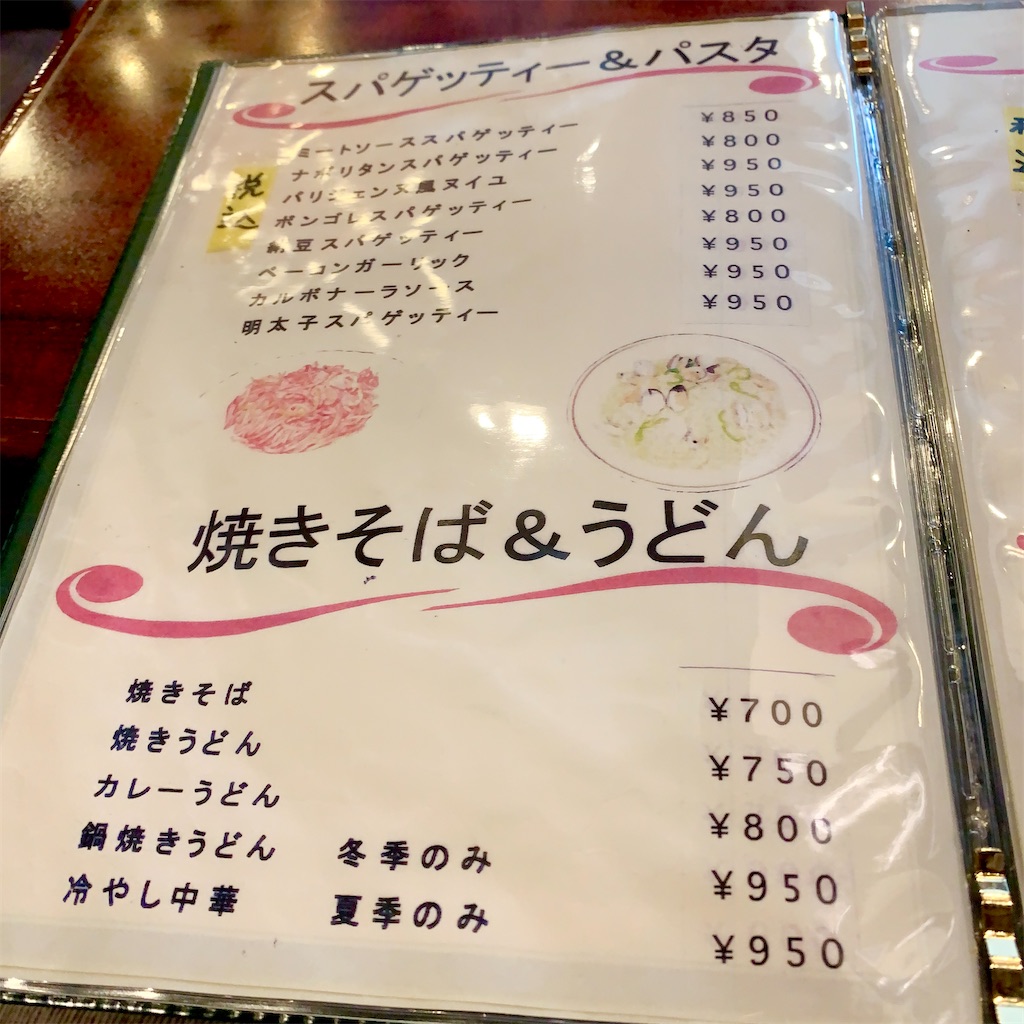 スパゲッティー&パスタ
税込
ミートソーススパゲッティー ¥850
ナポリタンスパゲッティー ¥800
パリジェンヌ風ヌイユ ¥950
ボンゴレスパゲッティー ¥950
納豆スパゲッティー ¥800
ベーコンガーリック ¥950
カルボナーラソース ¥950
明太子スパゲッティー ¥950
焼きそば&うどん
焼きそば ¥700
焼きうどん ¥750
カレーうどん ¥800
鍋焼きうどん 冬季のみ ¥950
冷やし中華 夏季のみ ¥950